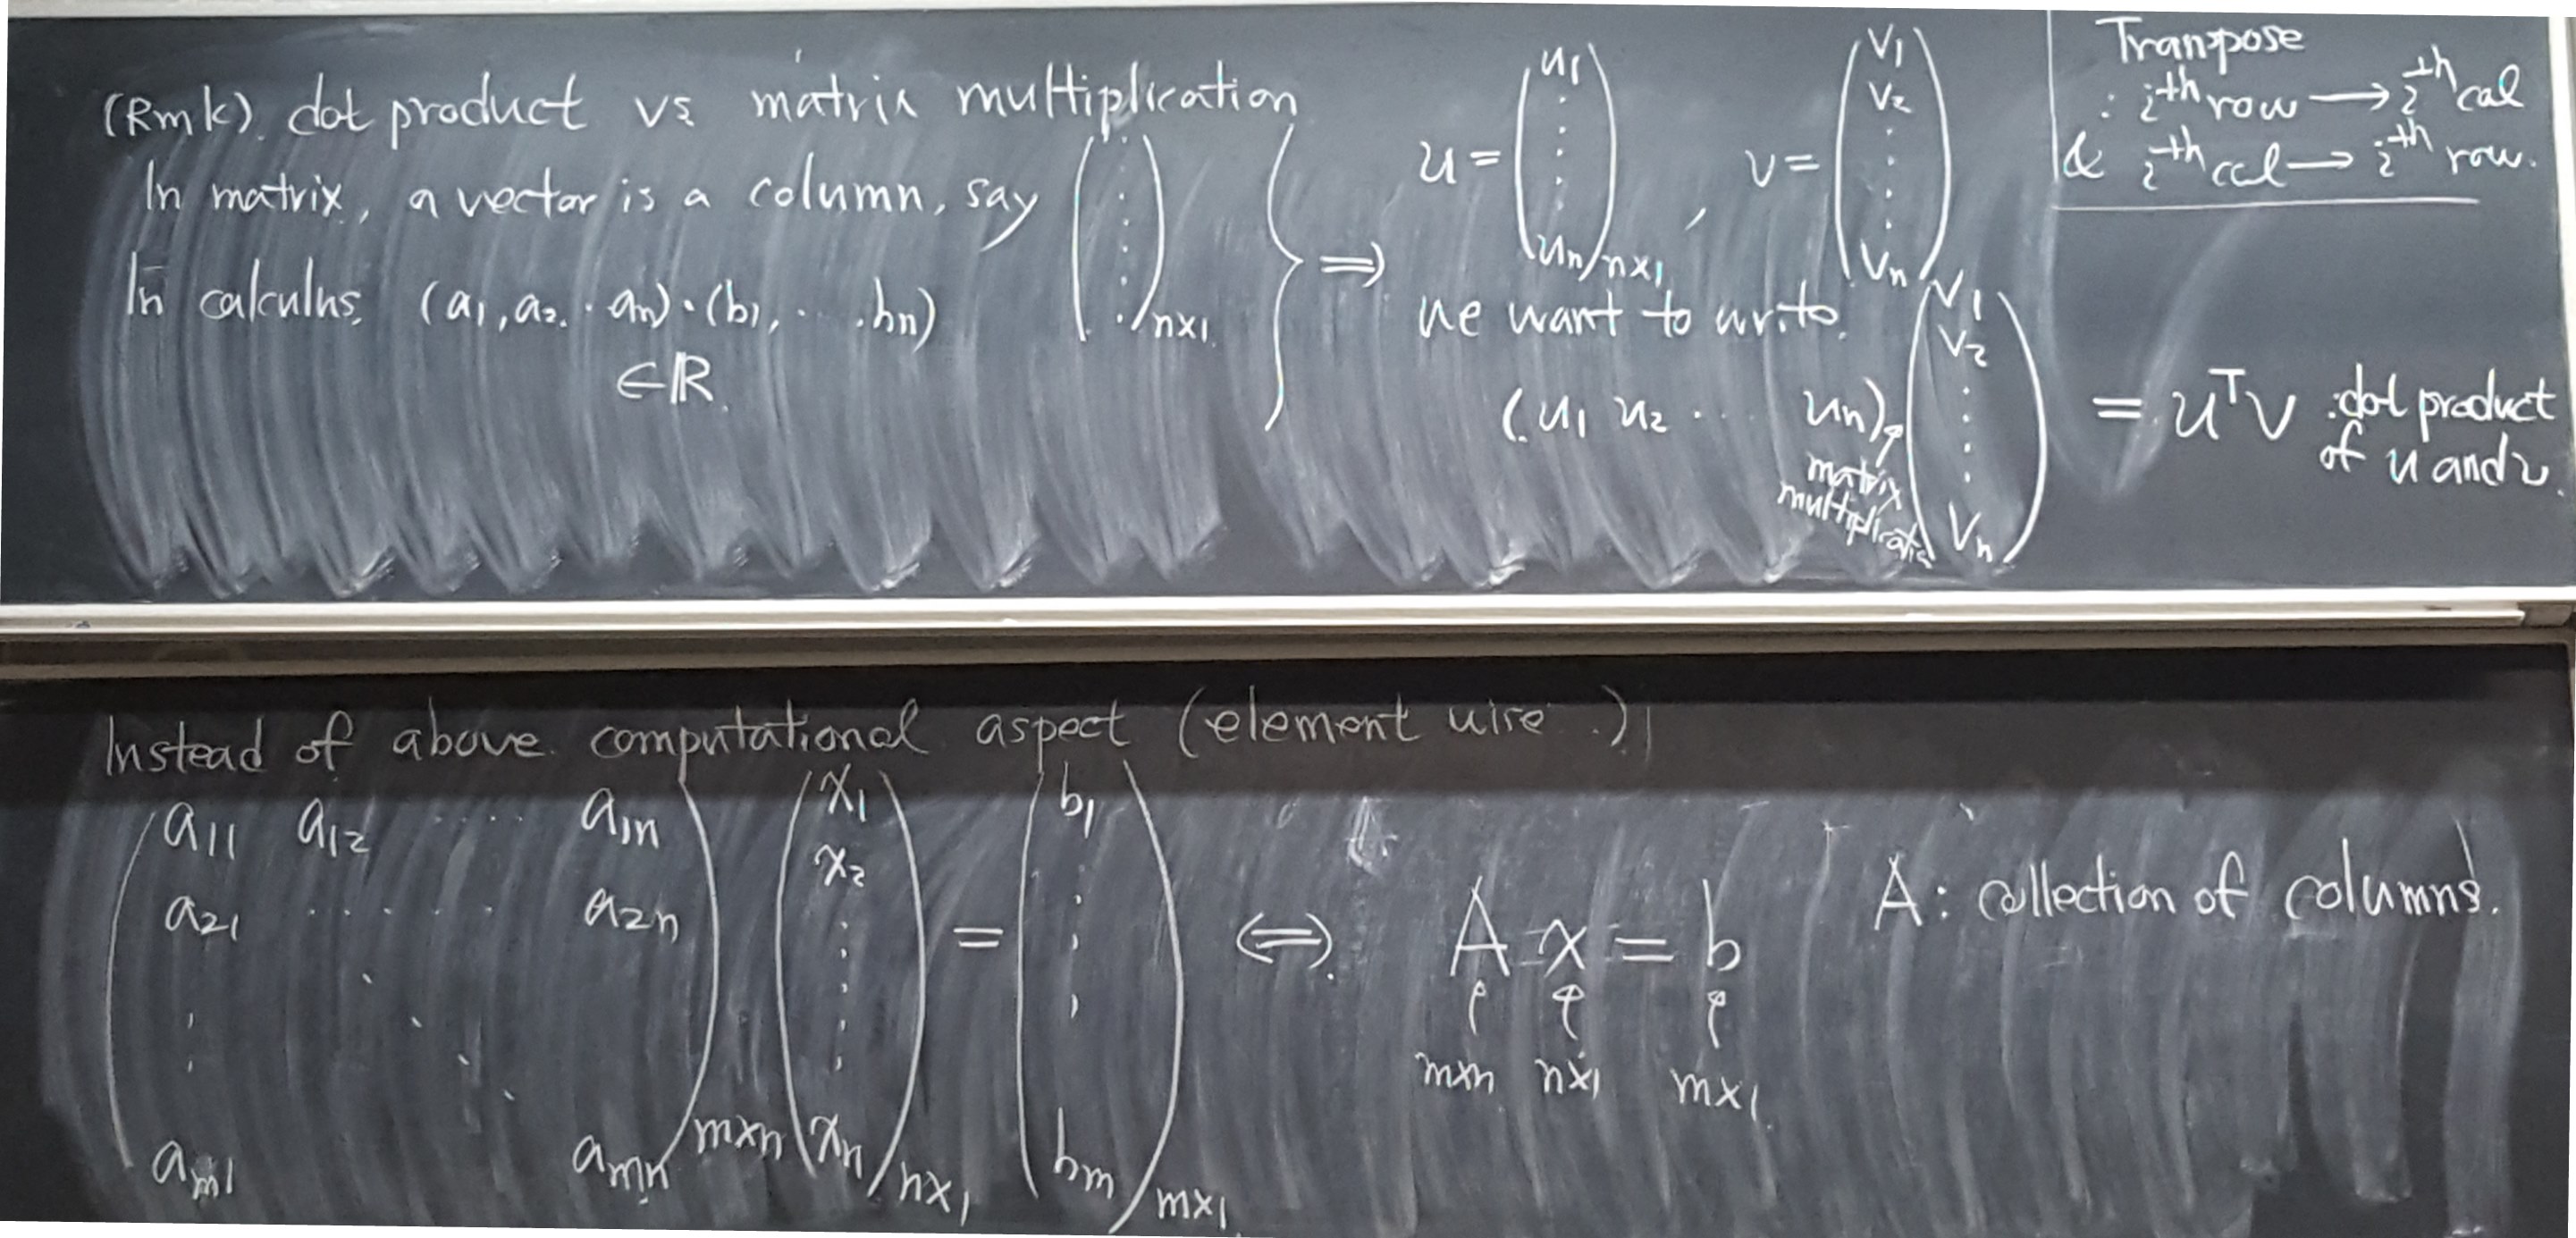 (Rmk). dot product vs matrix multiplication
In matrix, a vector is a column, say ( ⋮ )n×1
In calculus, (a1, a2. · an) · (b1, · · · bn)
∈ ℝ.
⟹ u = (u1 ⋮ un)n×1, v = (v1 v2 ⋮ vn)
we want to write.
(u1 u2 ··· un) (v1 v2 ⋮ vn) = uᵀv : dot product
of u and v.
matrix
multiplicatio
Tranpose
: iᵗʰ row → iᵗʰ col
& iᵗʰ col → iᵗʰ row.
Instead of above computational aspect (element wise ..)
(a11 a12 ···· a1n
a21 ······ a2n
⋮ ⋱
am1 amn)m×n (x1 x2 ⋮ xn)n×1 = (b1 ⋮ bm)m×1 ⟺ A x = b
m×n n×1 m×1
A : collection of columns.